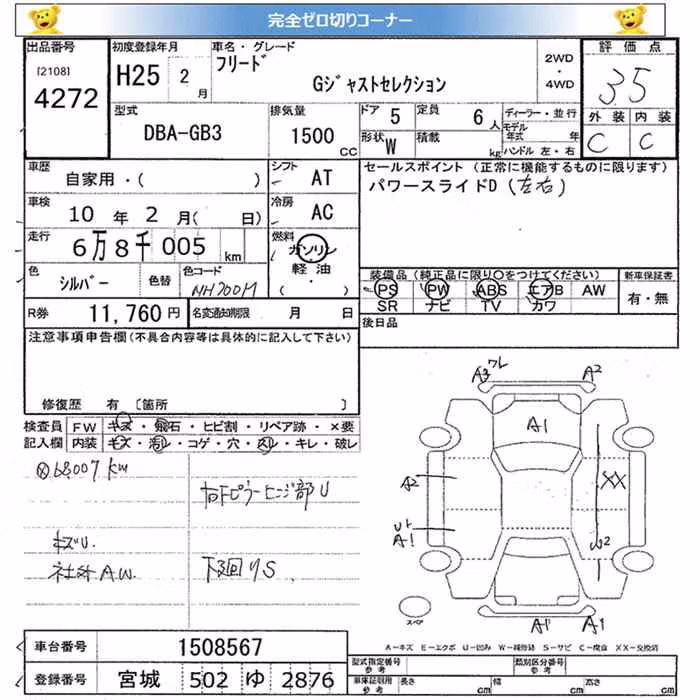 完全ゼロ切りコーナー
出品番号
[2108]
4272
初度登録年月
H25 2月
車名・グレード
フリード
Gジャストセレクション
2WD
・
4WD
評価点
3.5
外装 内装
C C
型式
DBA-GB3
排気量
1500 CC
ドア 5
定員 6人
形状 W
積載 kg
ディーラー・並行
モデル年式 年
ハンドル 左・右
車歴
自家用・( )
シフト AT
車検
10年2月( 日)
冷房 AC
走行
6万8千005 km
燃料
ガソリン
軽油
( ・ )
色
シルバー
色替
色コード
NH700M
R券 11,760円
名変通知期限 月 日
セールスポイント (正常に機能するものに限ります)
パワースライドD (左右)
装備品 (純正品に限り○をつけてください)
PS PW ABS エアB AW
SR ナビ TV カワ
新車保証書
有・無
後日品
注意事項申告欄 (不具合内容等は具体的に記入して下さい)
修復歴 有 〔箇所 〕
検査員 FW キズ・飛石・ヒビ割・リペア跡・×要
記入欄 内装 キズ・汚レ・コゲ・穴・スレ・キレ・破レ
⊗68,007km
右Fピラーヒンジ部U
キズU.
社外A.W.
下回りS
A3 ワレ
A2
A1
A2
XX
U1
A1
W2
A1
A1
スペア
A-キズ E-エクボ U-凹み W-補修跡 S-サビ C-腐食 XX-交換済
車台番号 1508567
登録番号 宮城 502 ゆ 2876
型式指定番号
参考
類別区分番号
参考
車庫証明用
参考
長さ cm
幅 cm
高さ cm